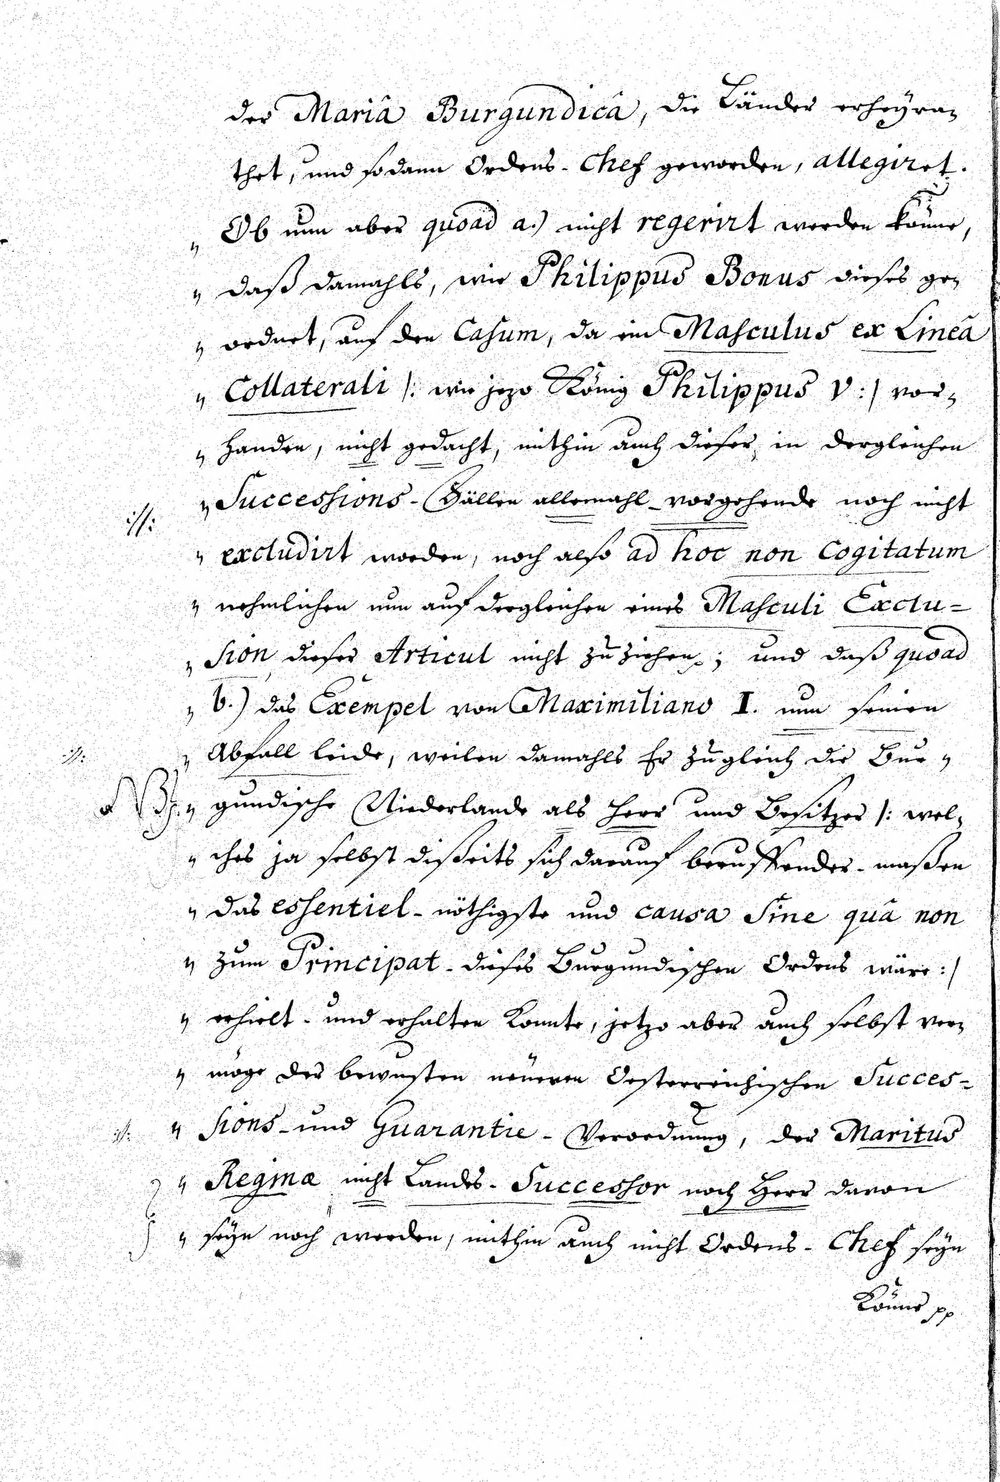 der Mariâ Burgundicâ, die Länder erheÿra=
thet, und sodann Ordens-Chef geworden, allegiret.
" Ob nun aber quoad a.) nicht regerirt werden könne,
" daß damahls, wie Philippus Bonus dieses ge=
" ordnet, auf den Casum, da ein Masculus ex Lineâ
" Collaterali /: wie jezo König Philippus V :/ vor=
" handen, nicht gedacht, mithin auch dieser, in dergleichen
" Successions-Fällen allemahl vorgehende noch nicht
" excludirt worden, noch also ad hoc non Cogitatum
" nehmlichen nun auf dergleichen eines Masculi Exclu=
" sion dieser Articul nicht zu ziehen; und daß quoad
" b.) das Exempel von Maximiliano I. nun seinen
" Abfall leide, weilen damahls Er zugleich die Bur=
NB. " gundische Niederlande als Herr und Besitzer /: wel=
" ches ja selbst dißeits sich darauf beruffender-maßen
" das essentiel-nöthigste und causa sine quâ non
" zum Principat dieses Burgundischen Ordens wäre :/
" erhielt- und erhalten konnte, jetzo aber auch selbst ver=
" möge der bewusten neueren Oesterreichischen Succes=
" sions-und Guarantie-Verordnung, der Maritus
" Reginæ nicht Landes-Successor noch Herr davon
" seÿn noch werden, mithin auch nicht Ordens-Chef seÿn
könne pp